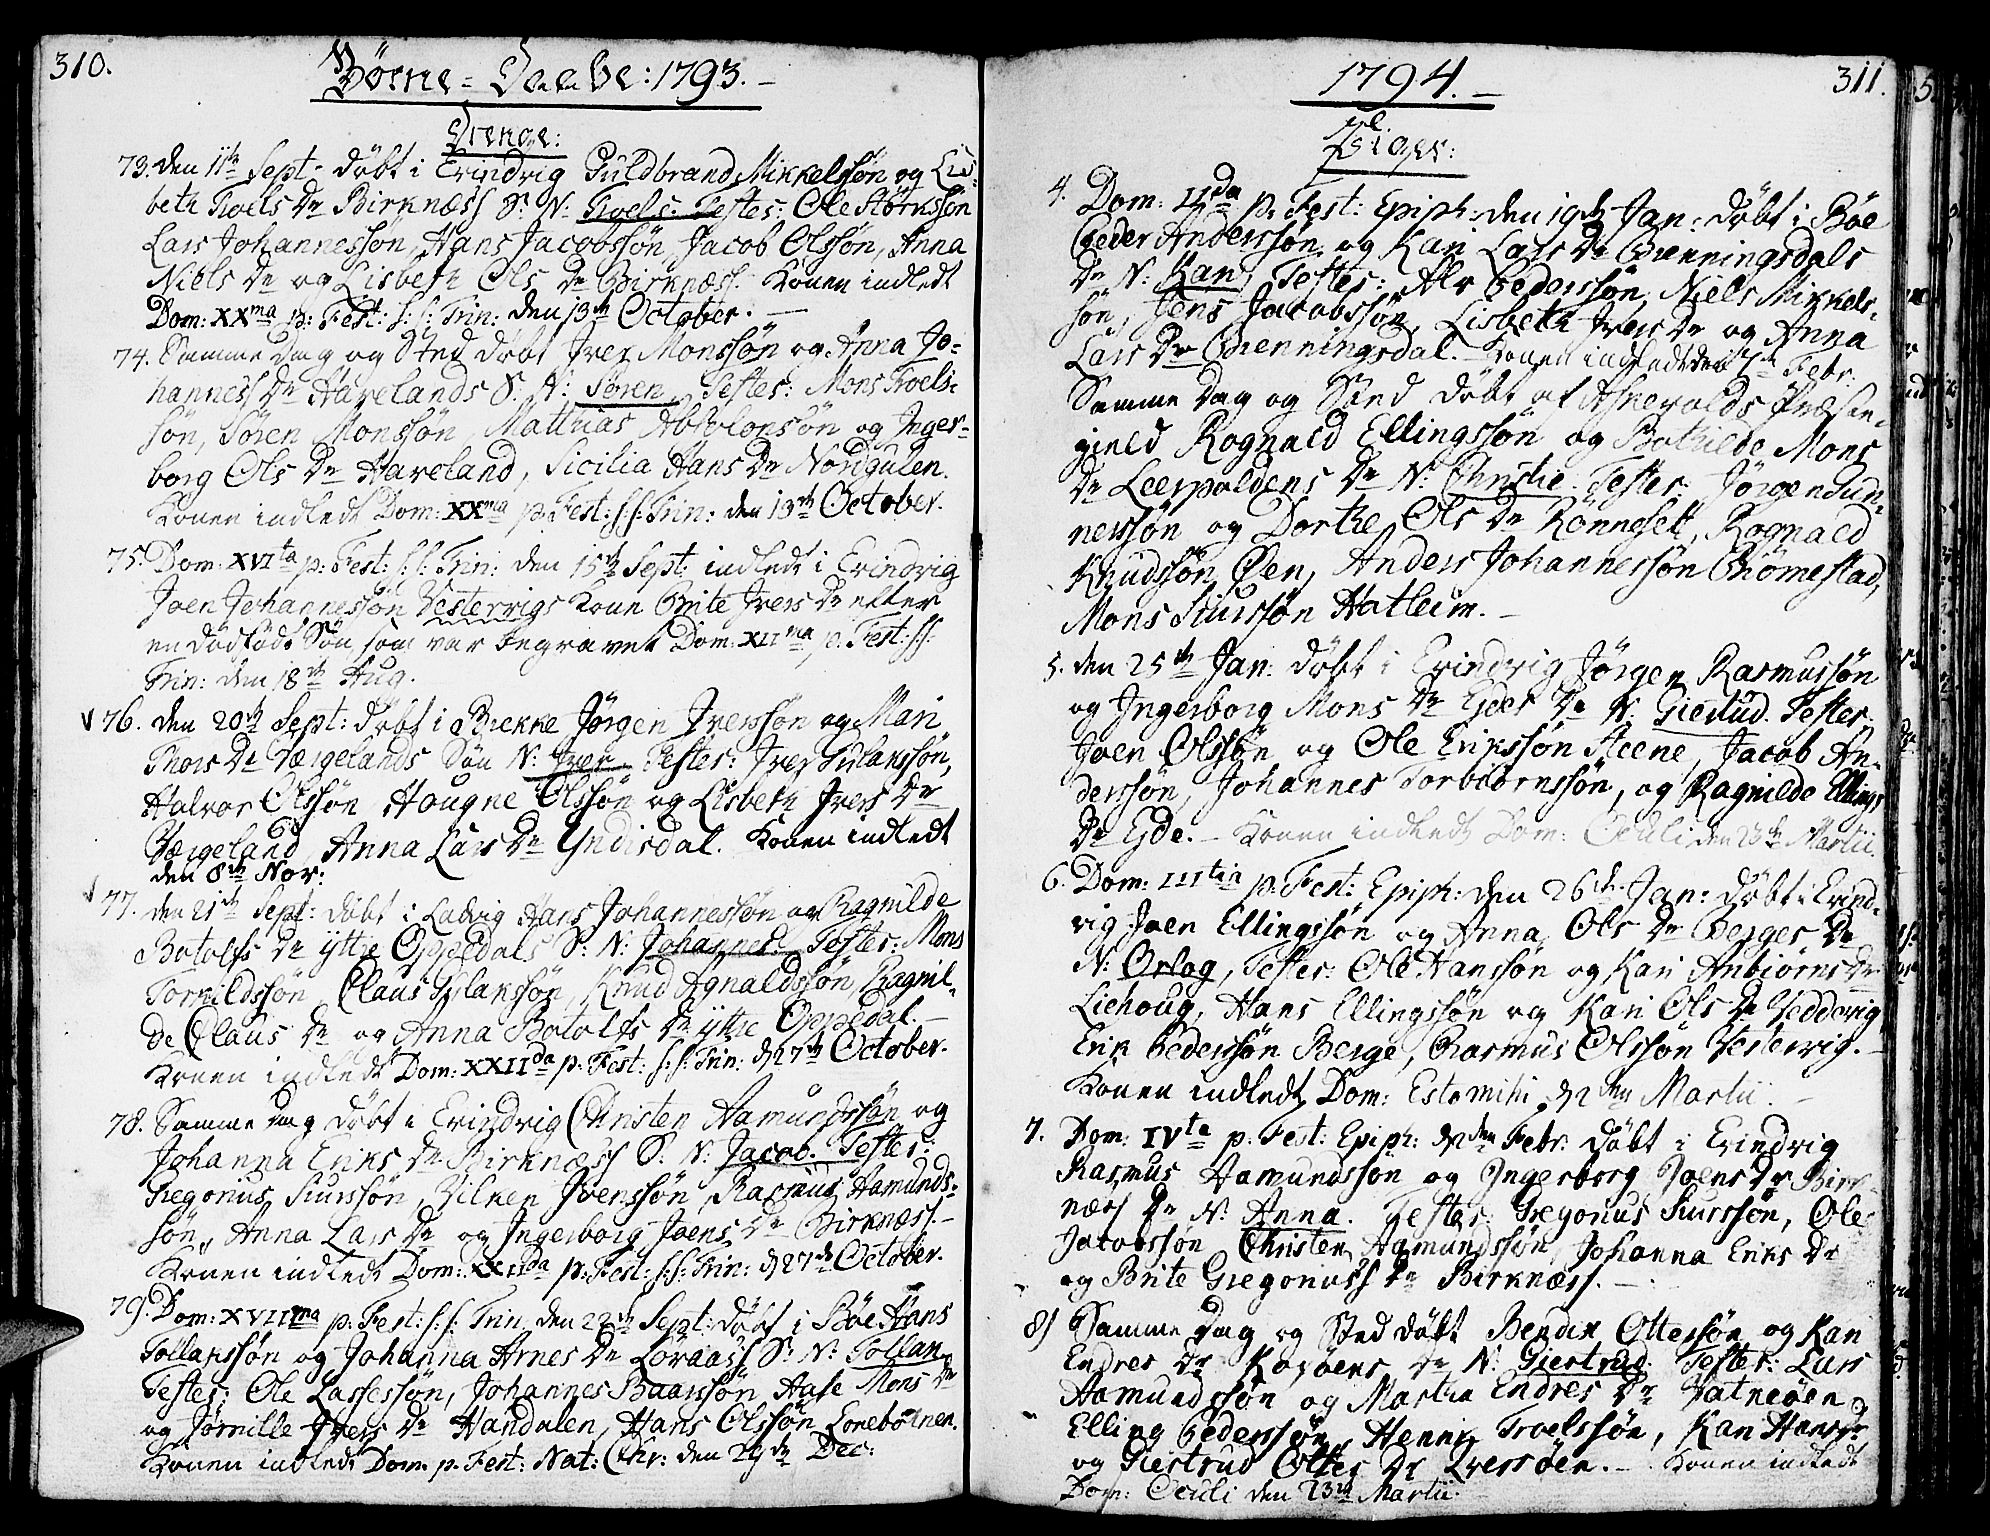 310.
Börne-Daabe: 1793.
Drenge:
73. den 11te Sept: döbt i Erindvig Guldbrand Mikkelssön og Lis-
beth Troels Dr Birknæss S: N: Troels: Testes: Ole Störkssön
Lars Johannessön, Hans Jacobssön, Jacob Olssön, Anna
Niels Dr og Lisbeth Ols Dr Birknæss. Konen indledt
Dom: XXma p: Fest: s: s: Trin: den 13de October.
74. Samme dag og Sted döbt Iver Monssön og Anna Jo-
hannes Dr Havelands S. N: Sören. Testes: Mons Troels-
sön, Sören Monssön, Matthias Absolonsön og Inger-
borg Ols Dr Haveland, Sicilia Hans Dr Nordgulen.
Konen indledt Dom: XXma p: Fest: s: s: Trin: den 13de October.
75. Dom: XVIta p: Fest: s: s: Trin: den 15de Sept: indledt i Erindvig
Joen Johannessön Vestervigs Kone Brite Ivers Dr efter
en dödfödt Sön som var begravet Dom: XIIma p: Fest: s: s:
Trin: den 18de Aug.
76. den 20de Sept: döbt i Brekke Jörgen Iverssön og Mari
Thors Dr Værgelands Sön N: Iver. Testes: Iver
Halvor Olssön, Hougne Olssön og Lisbeth Ivers Dr
Værgeland, Anna Lars Dr Yndisdal. Konen indledt
den 8de Nov:
77. den 21de Sept: döbt i Ladvig Hans Johannessön og Ragnilde
Botolfs Dr yttre Oppedals S: N: Johannes. Testes: Mons
Torkildssön, Claus, Knud Agnaldssön, Ragnil-
de Claus Dr og Anna Botolfs Dr yttre Oppedal.
Konen indledt Dom: XXIIda p: Fest: s: s: Trin: d 27de October.
78. Samme dag döbt i Erindvig Christen Aamundssön og
Johanna Eriks Dr Birknæss S: N: Jacob. Testes:
Gregorius Siurssön, Joenssön, Rasmus Aamunds-
sön, Anna Lars Dr og Ingerborg Joens Dr Birknæss.
Konen indledt Dom: XXIIda p: Fest: s: s: Trin: d 27de October.
79. Dom: XVIIma p: Fest: s: s: Trin: den 22de Sept: döbt i Böe Hans
Tollakssön og Johanna Arnes Dr S: N: Tollak
Testes: Ole Lassesön, Johannes Baarssön, Aase Mons Dr
og Jornille Ivers Dr Handalen, Hans Olssön Lonebotnen.
Konen indledt Dom. p. Fest: Nat: Chr: den 29de Dec:
1794.
311.
Piger:
4. Dom: IIda p: Fest: Epiph: den 19de Jan: döbt i Böe
Peder Anderssön og Kari Lars Dr Grenningsdals
Dr N: Kari, Testes: Peders­sön, Niels Mikkels-
sön, Jens Jacobssön, Lisbeth Ivers Dr og Anna
Lars Dr Grenningsdal. Konen indledt den Febr:
Samme dag og Sted döbt af Askevolds Præste-
gield Rognald Ellingssön og Bothilde Mons
Dr Dr N: Christie. Testes: Jörgen Gun-
nerssön og Dorthe Ols Dr Rönnesett, Rognald
Knudssön Öen, Anders Johannessön Strömestad,
Mons Siurssön Hatleim.
5. den 25de Jan: döbt i Erindvig Jörgen Rasmussön
og Ingerborg Mons Dr Eides Dr N: Giertrud. Testes:
Joen Olssön og Ole Erikssön Steene, Jacob An-
derssön, Johannes Torbiörnssön, og Ragnilde Ellings
Dr Eide. Konen indledt Dom: Oculi den 23de Martii.
6. Dom: IIItia p: Fest: Epiph: den 26de Jan: döbt i Erind-
vig Joen Ellingssön og Anna Ols Dr Berges Dr
N: Orlog, Testes: Ole Hanssön og Kari Anbiörns Dr
Liehoug, Hans Ellingssön og Kari Ols Dr
Erik Pederssön Berge, Rasmus Olssön Vestervig.
Konen indledt Dom: Estomihi d 2den Martii.
7. Dom: IVta p: Fest: Epiph: d 2den Febr: döbt i Erindvig
Rasmus Aamundssön og Ingerborg Joens Dr Birk-
næss Dr N: Anna. Testes: Gregorius Siurssön, Ole
Jacobssön, Christen Aamundssön, Johanna Eriks Dr
og Brite Gregorius Dr Birknæss.
8) Samme dag og Sted döbt Bendix Ottersön og Kari
Endres Dr Dr N: Giertrud. Testes: Lars
Aamundssön og Martha Endres Dr Vatneöen,
Elling Pederssön, Henrik Troelssön, Kari Hans Dr
og Giertrud Otters Dr. Konen indledt
Dom: Oculi den 23de Martii.